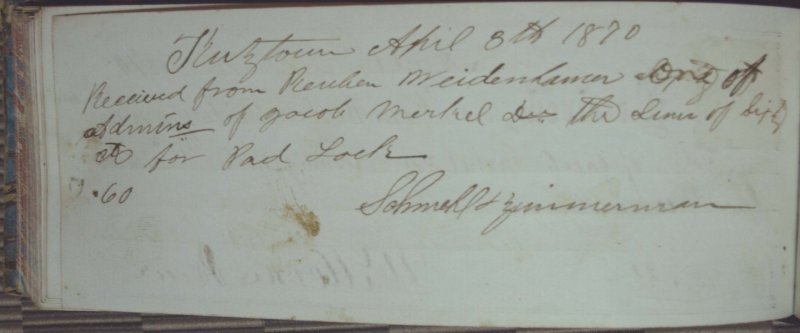 Kutztown April 8th 1870
Received from Reuben Weidenhamer One of
Admins of Jacob Merkel Dec the Sum of Sixty
cts for Pad Lock
.60
Schmehl & Zimmerman